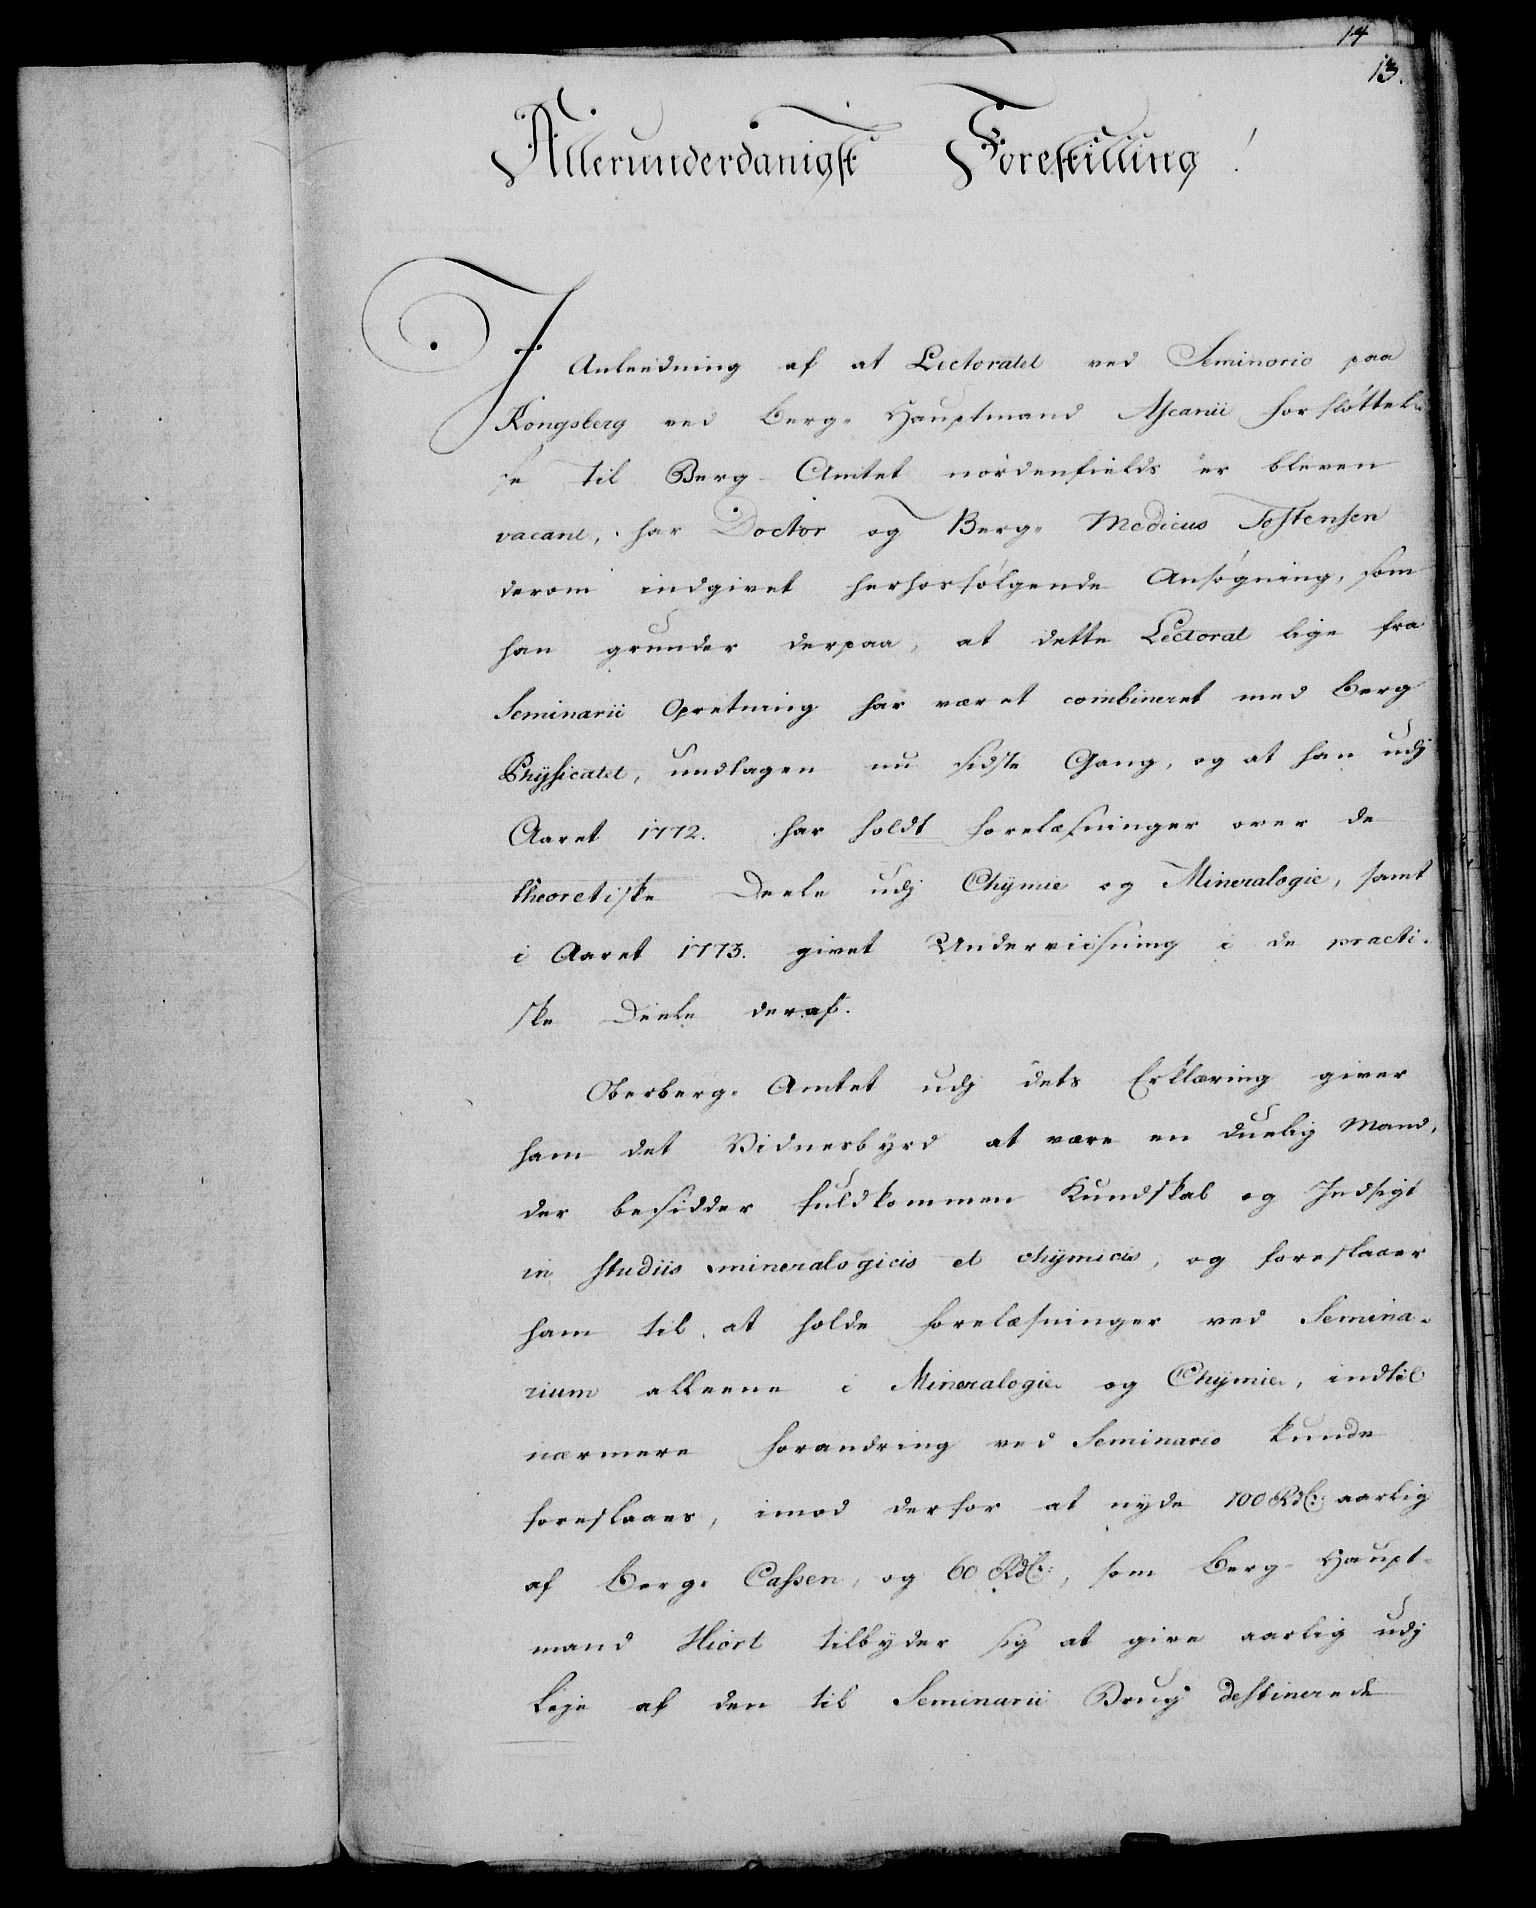 14
13.
Allerunderdanigst Forestilling!
I Anleedning af at Lectoratet ved Seminario paa
Kongsberg ved Berg-Hauptmand Ascanii forfløttel-
se til Berg-Amtet nordenfields er bleven
vacant, har Doctor og Berg-Medicus Tostensen
derom indgivet herhosfølgende Ansøgning, som
han grunder derpaa, at dette Lectorat lige fra
Seminarii Opretning har været combineret med Berg
Physicatet, undtagen nu sidste Gang, og at han udj
Aaret 1772. har holdt forelæsninger over de
theoretiske Deele udj Chymie og Mineralogie, samt
i Aaret 1773. givet Underviisning i de practi-
ske Deele deraf.
Oberberg-Amtet udj dets Erklæring giver
ham det Vidnesbyrd at være en duelig Mand,
der besidder fuldkommen Kundskab og Indsigt
in studiis mineralogicis et chymicis, og foreslaaer
ham til at holde forelæsninger ved Semina-
rium alleene i Mineralogie og Chymie, indtil
nærmere forandring ved Seminario kunde
foreslaaes, imod derfor at nyde 100 Rdlr: aarlig
af Berg-Cassen, og 60 Rdlr:, som Berg-Haupt-
mand Hiort tilbyder sig at give aarlig udj
Leje af den til Seminarii Brug destinerede